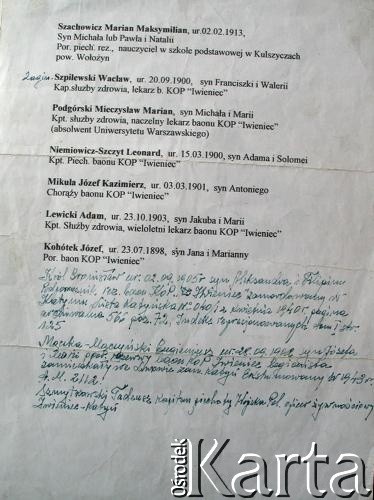 Szachowicz Marian Maksymilian, ur.02.02.1913,
Syn Michała lub Pawła i Natalii
Por. piech. rez., nauczyciel w szkole podstawowej w Kulszyczach
pow. Wołożyn
Szpilewski Wacław, ur. 20.09.1900, syn Franciszki i Walerii
Kap.służby zdrowia, lekarz b. KOP “Iwieniec”
Podgórski Mieczysław Marian, syn Michała i Marii
Kpt. służby zdrowia, naczelny lekarz baonu KOP “Iwieniec”
(absolwent Uniwersytetu Warszawskiego)
Niemiowicz-Szczyt Leonard, ur. 15.03.1900, syn Adama i Solomei
Kpt. Piech. baonu KOP “Iwieniec”
Mikuła Józef Kazimierz, ur. 03.03.1901, syn Antoniego
Chorąży baonu KOP “Iwieniec”
Lewicki Adam, ur. 23.10.1903, syn Jakuba i Marii
Kpt. Służby zdrowia, wieloletni lekarz baonu KOP “Iwieniec”
Kohótek Józef, ur. 23.07.1898, syn Jana i Marianny
Por. baon KOP “Iwieniec”
Król ur. 02.09.1905r syn Aleksandra i
rez. baon KOP Iwieniec zamordowany w
Katyniu Lista Katyńska N° 040/1 z kwietnia 1940r. pagina
archiwalna poz. 72, Indeks represjonowanych tom I str.
125
ur. syn Józefa
baon KOP Iwieniec
zam. Katyń Ekshumowany w 1943r.
Tadeusz kapitan piechoty Wojska Pol. oficer żywnościowy
Iwieniec-Katyń
Ośrodek
Karta